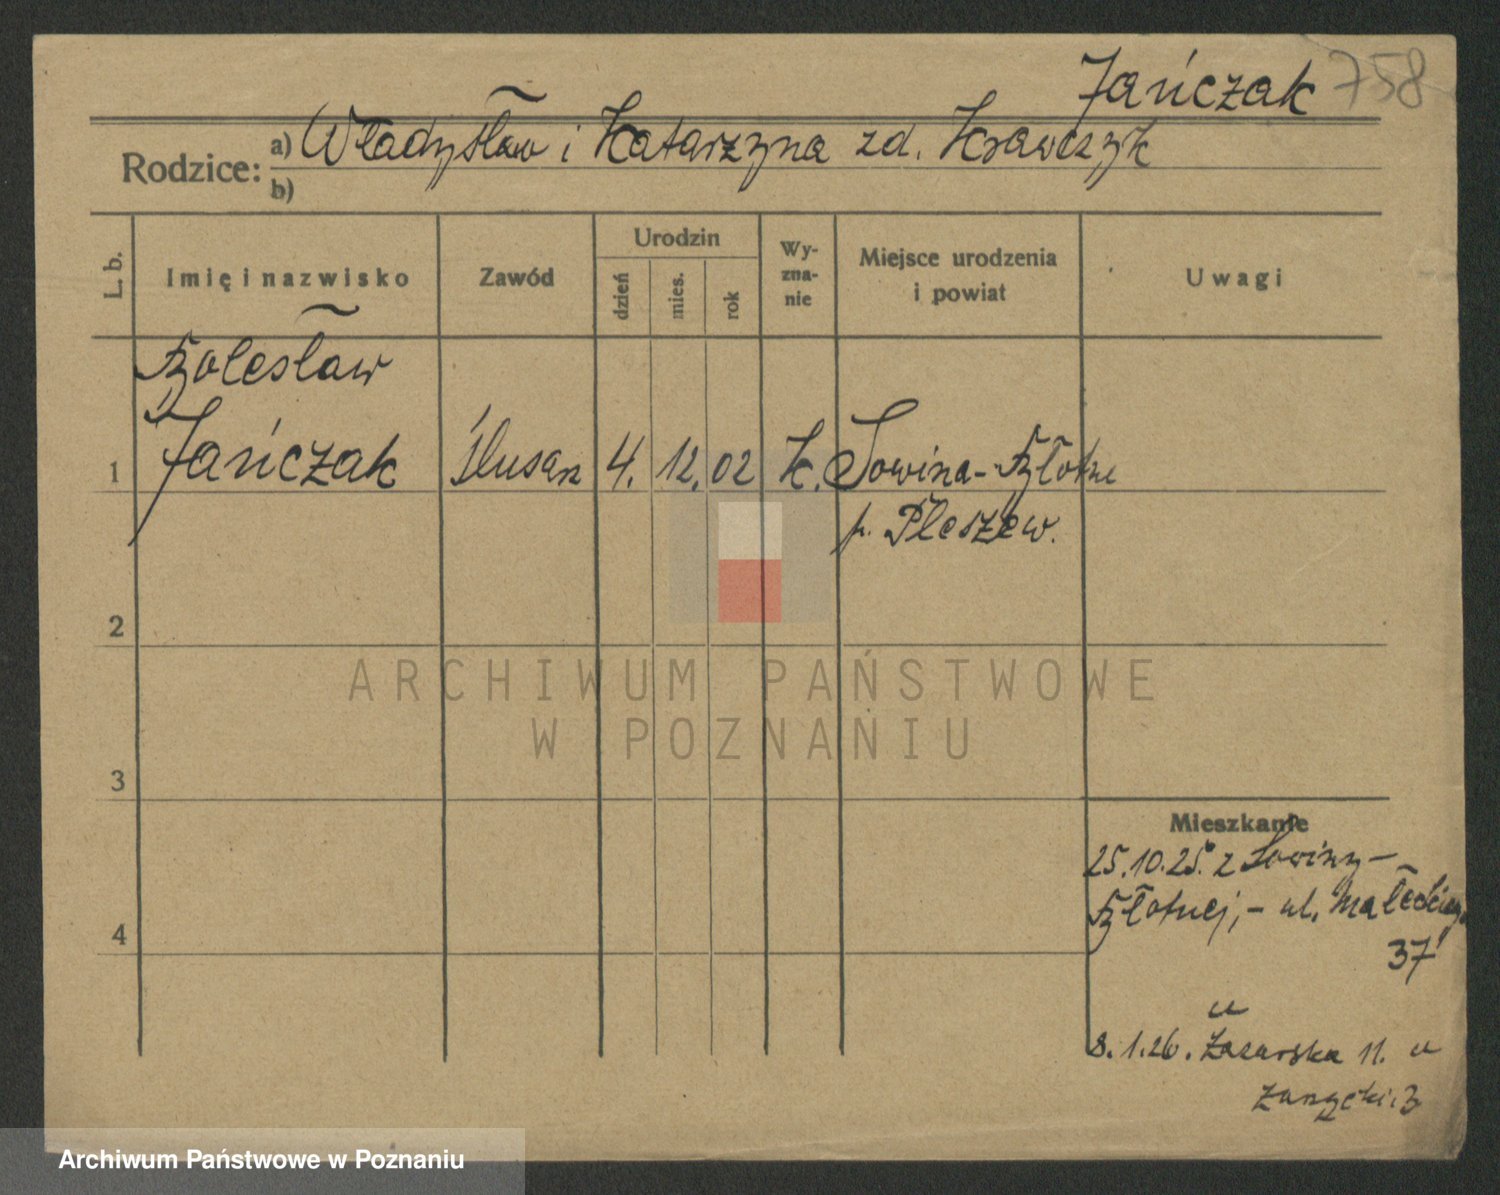 Jańczak 758
Rodzice: a) Władysław i Katarzyna zd. Krawczyk
b)
L. b.
Imię i nazwisko
Zawód
Urodzin
dzień
mies.
rok
Wy-
zna-
nie
Miejsce urodzenia
i powiat
Uwagi
Bolesław
1 Jańczak Ślusarz 4. 12. 02 k. Sowina-Błotna
p. Pleszew.
2
ARCHIWUM PAŃSTWOWE
W POZNANIU
3
Mieszkanie
25.10.25. z Sowiny-
Błotnej, - ul. Małeckiego
4
37
u
8.1.26. Łazarska 11. u
Archiwum Państwowe w Poznaniu